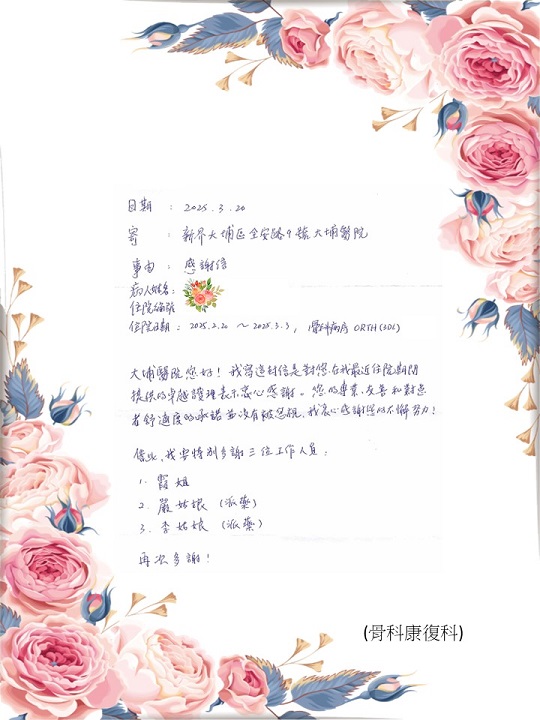 日期 : 2025.3.20
寄 : 新界大埔區全安路9號大埔醫院
事由 : 感謝信
病人姓名:
住院編號
住院日期 : 2025.2.20 ~ 2025.3.3, 骨科病房 ORTH(3DL)
大埔醫院您好! 我寫這封信是對您在我最近住院期間
提供的卓越護理表示衷心感謝。您的專業、友善和對患
者舒適度的承諾並沒有被忽視, 我衷心感謝您的不懈努力!
借此, 我要特別多謝三位工作人員:
1. 霞姐
2. 嚴姑娘 (派藥)
3. 李姑娘 (派藥)
再次多謝!
(骨科康復科)